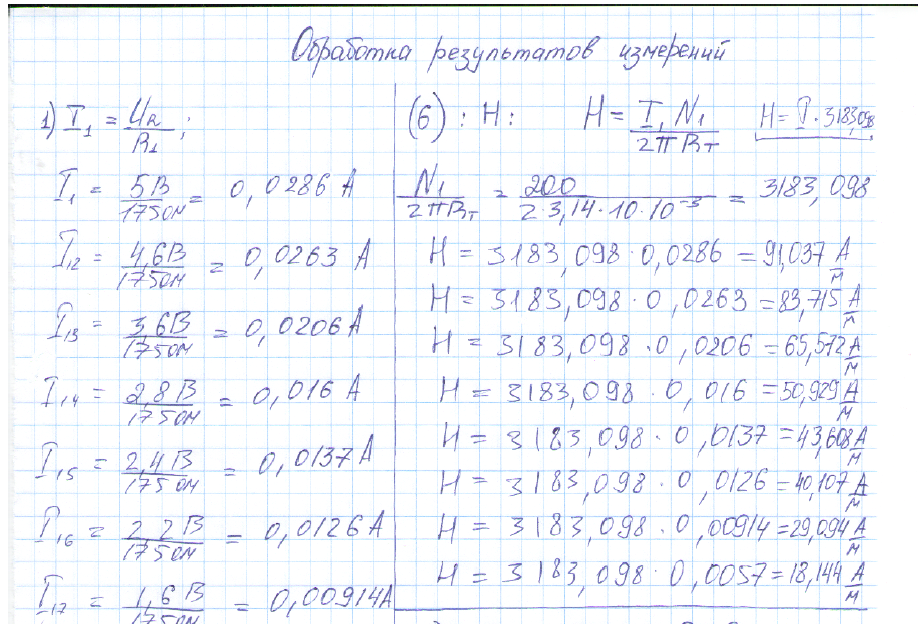 Обработка результатов измерений
1) I₁ = U_R / R₁ ;
I₁ = 5В / 175Ом = 0,0286 А
I₁₂ = 4,6В / 175Ом = 0,0263 А
I₁₃ = 3,6В / 175Ом = 0,0206 А
I₁₄ = 2,8В / 175Ом = 0,016 А
I₁₅ = 2,4В / 175Ом = 0,0137 А
I₁₆ = 2,2В / 175Ом = 0,0126 А
I₁₇ = 1,6В / 175Ом = 0,00914 А
(6) : H : H = I₁ N₁ / 2πR_т H = I · 3183,098
N₁ / 2πR_т = 200 / 2·3,14·10·10⁻³ = 3183,098
H = 3183,098 · 0,0286 = 91,037 А/м
H = 3183,098 · 0,0263 = 83,715 А/м
H = 3183,098 · 0,0206 = 65,572 А/м
H = 3183,098 · 0,016 = 50,929 А/м
H = 3183,098 · 0,0137 = 43,608 А/м
H = 3183,098 · 0,0126 = 40,107 А/м
H = 3183,098 · 0,00914 = 29,094 А/м
H = 3183,098 · 0,0057 = 18,144 А/м